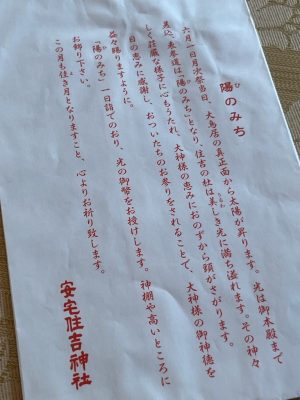 陽のみち
ひ
六月一日月次祭当日、大鳥居の真正面から太陽が昇ります。光は御本殿まで
差込、表参道は「陽のみち」となり、住吉の杜は美しき光に満ち溢れます。その神々
しく荘厳な様子に心もうたれ、大神様の恵みにおのずから頭がさがります。
日の恵みに感謝し、おついたちのお参りをされることで、大神様の御神徳を
益々賜りますように。
「陽のみち」一日詣でのおり、光の御幣をお授けします。神棚や高いところに
お飾り下さい。
この月も佳き月となりますこと、心よりお祈り致します。
安宅住吉神社